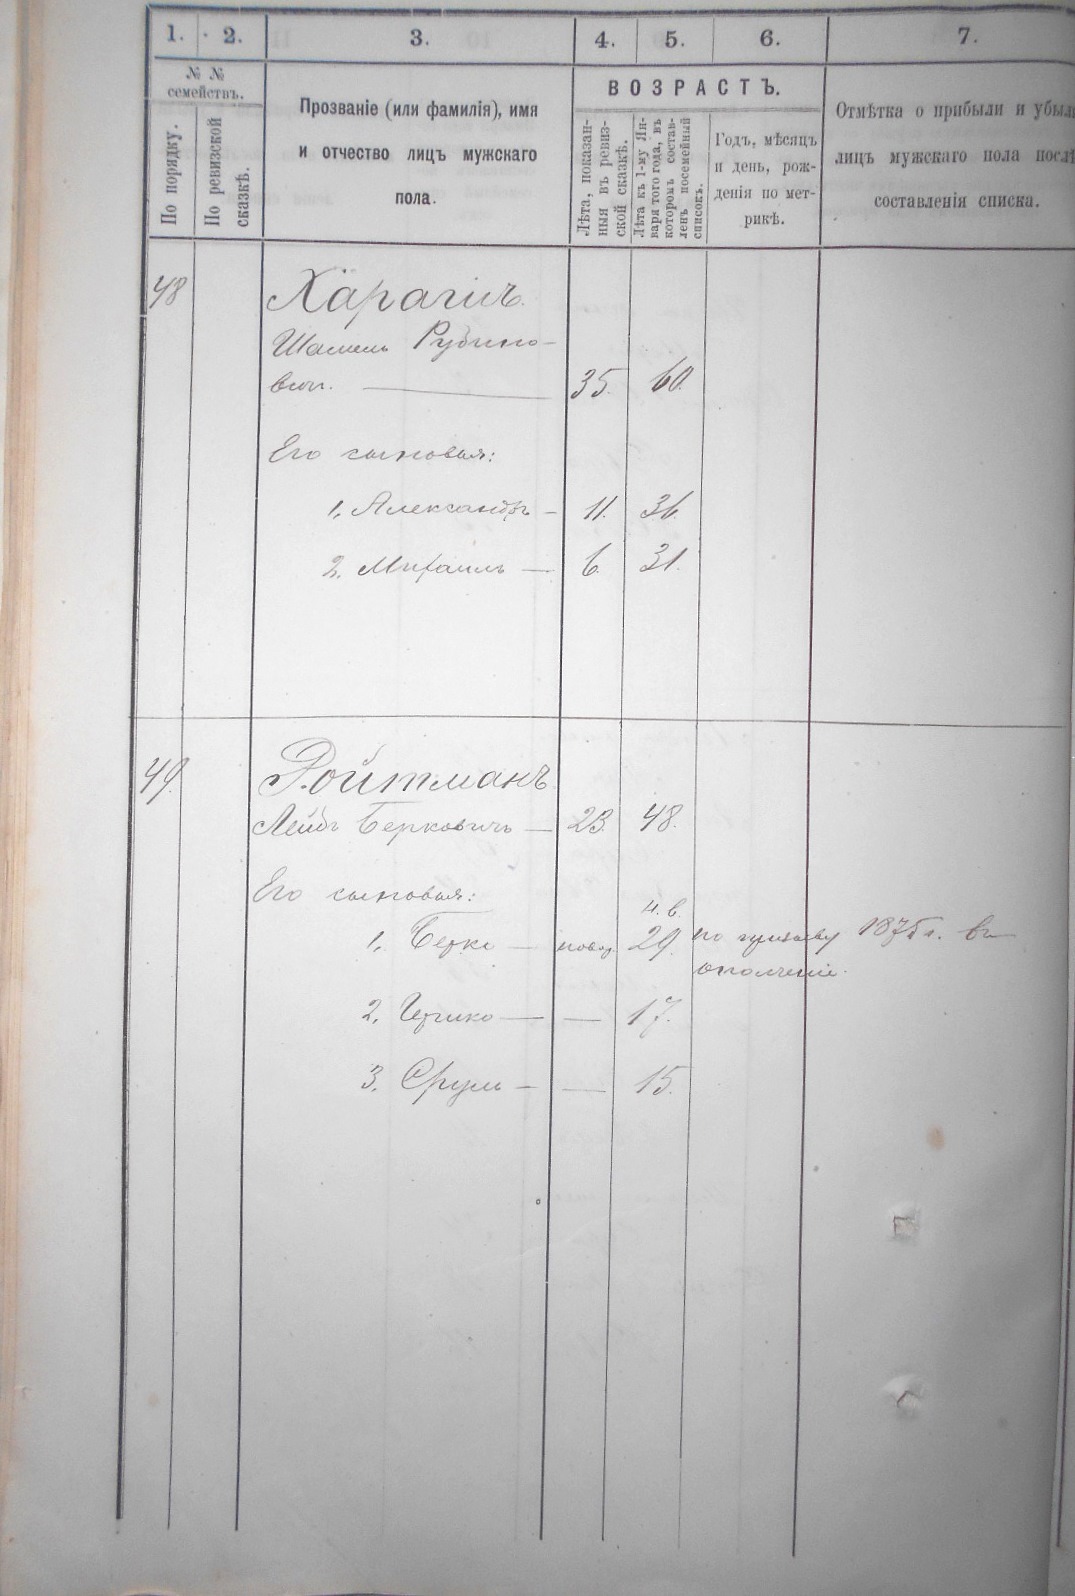 1. 2. 3. 4. 5. 6. 7.
№ №
семействъ.
По порядку.
По ревизской
сказкѣ.
Прозваніе (или фамилія), имя
и отчество лицъ мужскаго
пола.
ВОЗРАСТЪ.
Лѣта, показан-
ныя въ ревиз-
ской сказкѣ.
Лѣта къ 1-му Ян-
варя того года, въ
которомъ состав-
ленъ посемейный
списокъ.
Годъ, мѣсяцъ
и день, рож-
денія по мет-
рикѣ.
Отмѣтка о прибыли и убыли
лицъ мужскаго пола послѣ
составленія списка.
48 Харагилъ
Рубино-
вич. — 35. 60.
Его сыновья:
1, Александръ — 11. 36.
2, Михаилъ — 6. 31.
49. Ройтманъ
Лейбъ Берковичъ — 23. 48.
Его сыновья:
н. в.
1, Берко — новор. 29. по призыву 1875 г. въ
ополченіе.
2, — — 17.
3, Сруль — — 15.